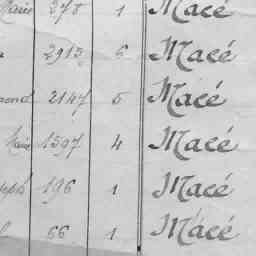 Marie 378 1 Macé
2915 6 Macé
mond 2147 5 Macé
Marie 1597 4 Macé
seph 196 1 Macé
66 1 Macé